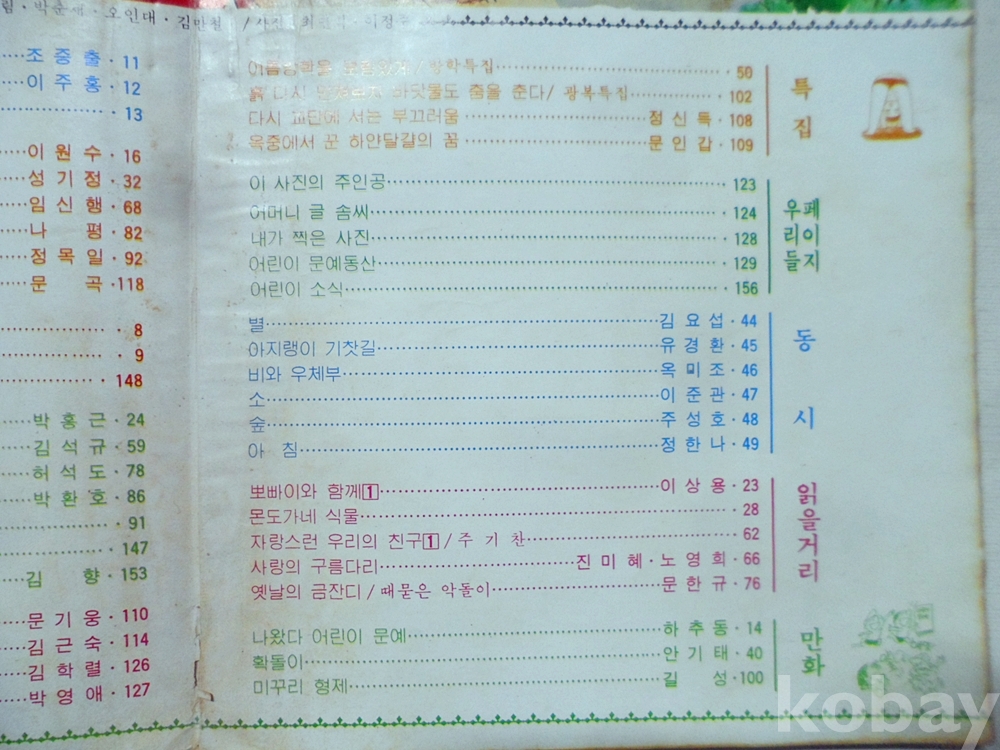 림·박준애·오인대·김만철 /사진
조 중 출 · 11
이 주 홍 · 12
13
이 원 수 · 16
성 기 정 · 32
임 신 행 · 68
나 평 · 82
정 목 일 · 92
문 곡 · 118
8
9
148
박 홍 근 · 24
김 석 규 · 59
허 석 도 · 78
박 환 호 · 86
91
147
김 향 · 153
문 기 웅 · 110
김 근 숙 · 114
김 학 렬 · 126
박 영 애 · 127
여름방학을 보람있게/방학특집 50
흙 다시 만져보자 바닷물도 춤을 춘다/광복특집 102
다시 교단에 서는 부끄러움 정 신 득 · 108
옥중에서 꾼 하얀달걀의 꿈 문 인 갑 · 109
특집
이 사진의 주인공 123
어머니 글 솜씨 124
내가 찍은 사진 128
어린이 문예동산 129
어린이 소식 156
우리들 페이지
별 김 요 섭 · 44
아지랭이 기찻길 유 경 환 · 45
비와 우체부 옥 미 조 · 46
소 이 준 관 · 47
숲 주 성 호 · 48
아 침 정 한 나 · 49
동시
뽀빠이와 함께1 이 상 용 · 23
몬도가네 식물 28
자랑스런 우리의 친구1/주 기 찬 62
사랑의 구름다리 진 미 혜 · 노 영 희 · 66
옛날의 금잔디/때묻은 악돌이 문 한 규 · 76
읽을거리
나왔다 어린이 문예 하 추 동 · 14
확돌이 안 기 태 · 40
미꾸리 형제 길 성 · 100
만화
kobay